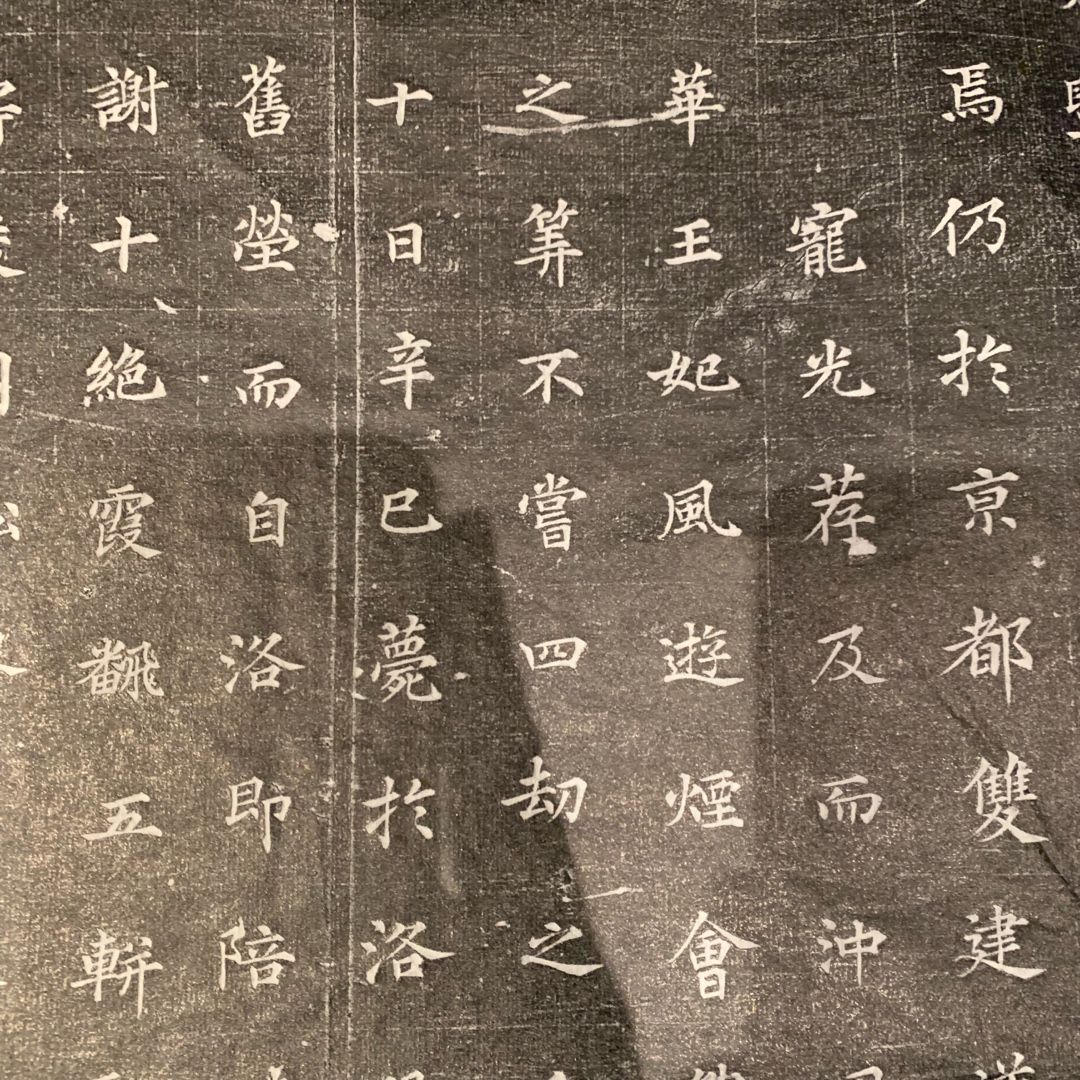 焉仍於京都雙建
寵光荐及而沖
華王妃風遊煙會
之筭不嘗四劫之
十日辛巳薨於洛
舊塋而自洛即陪
謝十絕霞飜五輧